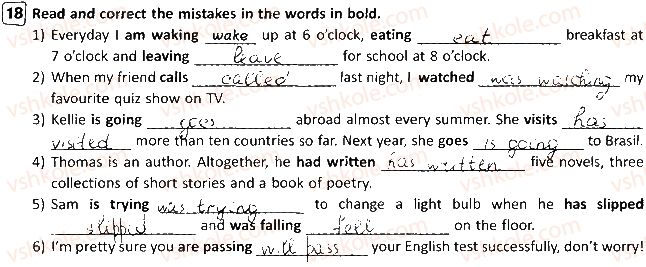 18 Read and correct the mistakes in the words in bold.
1) Everyday I am waking wake up at 6 o'clock, eating eat breakfast at
7 o'clock and leaving leave for school at 8 o'clock.
2) When my friend calls called last night, I watched was watching my
favourite quiz show on TV.
3) Kellie is going goes abroad almost every summer. She visits has
visited more than ten countries so far. Next year, she goes is going to Brasil.
4) Thomas is an author. Altogether, he had written has written five novels, three
collections of short stories and a book of poetry.
5) Sam is trying was trying to change a light bulb when he has slipped
slipped and was falling fell on the floor.
6) I'm pretty sure you are passing will pass your English test successfully, don't worry!